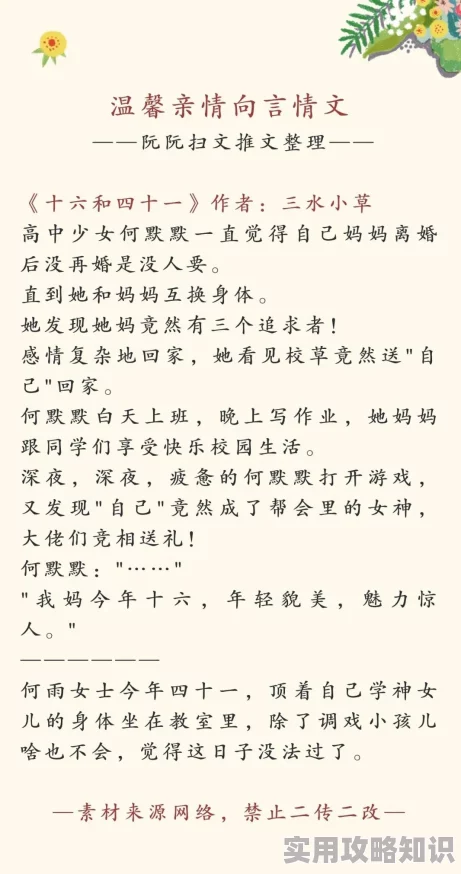 温馨亲情向言情文
——阮阮扫文推文整理——
《十六和四十一》作者：三水小草
高中少女何默默一直觉得自己妈妈离婚
后没再婚是没人要。
直到她和妈妈互换身体。
她发现她妈竟然有三个追求者！
感情复杂地回家，她看见校草竟然送"自
己"回家。
何默默白天上班，晚上写作业，她妈妈
跟同学们享受快乐校园生活。
深夜，深夜，疲惫的何默默打开游戏，
又发现"自己"竟然成了帮会里的女神，
大佬们竞相送礼！
何默默："……"
"我妈今年十六，年轻貌美，魅力惊
人。"
——————
何雨女士今年四十一，顶着自己学神女
儿的身体坐在教室里，除了调戏小孩儿
啥也不会，觉得这日子没法过了。
—素材来源网络，禁止二传二改—
实用攻略知识